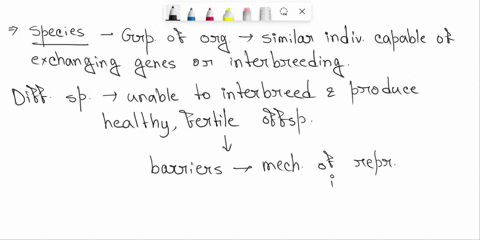 ⇒ species – Grp of org → similar indiv. capable of
exchanging genes or interbreeding.
Diff. sp. → unable to interbreed & produce
healthy, fertile offsp.
↓
barriers → mech. of repr.
i